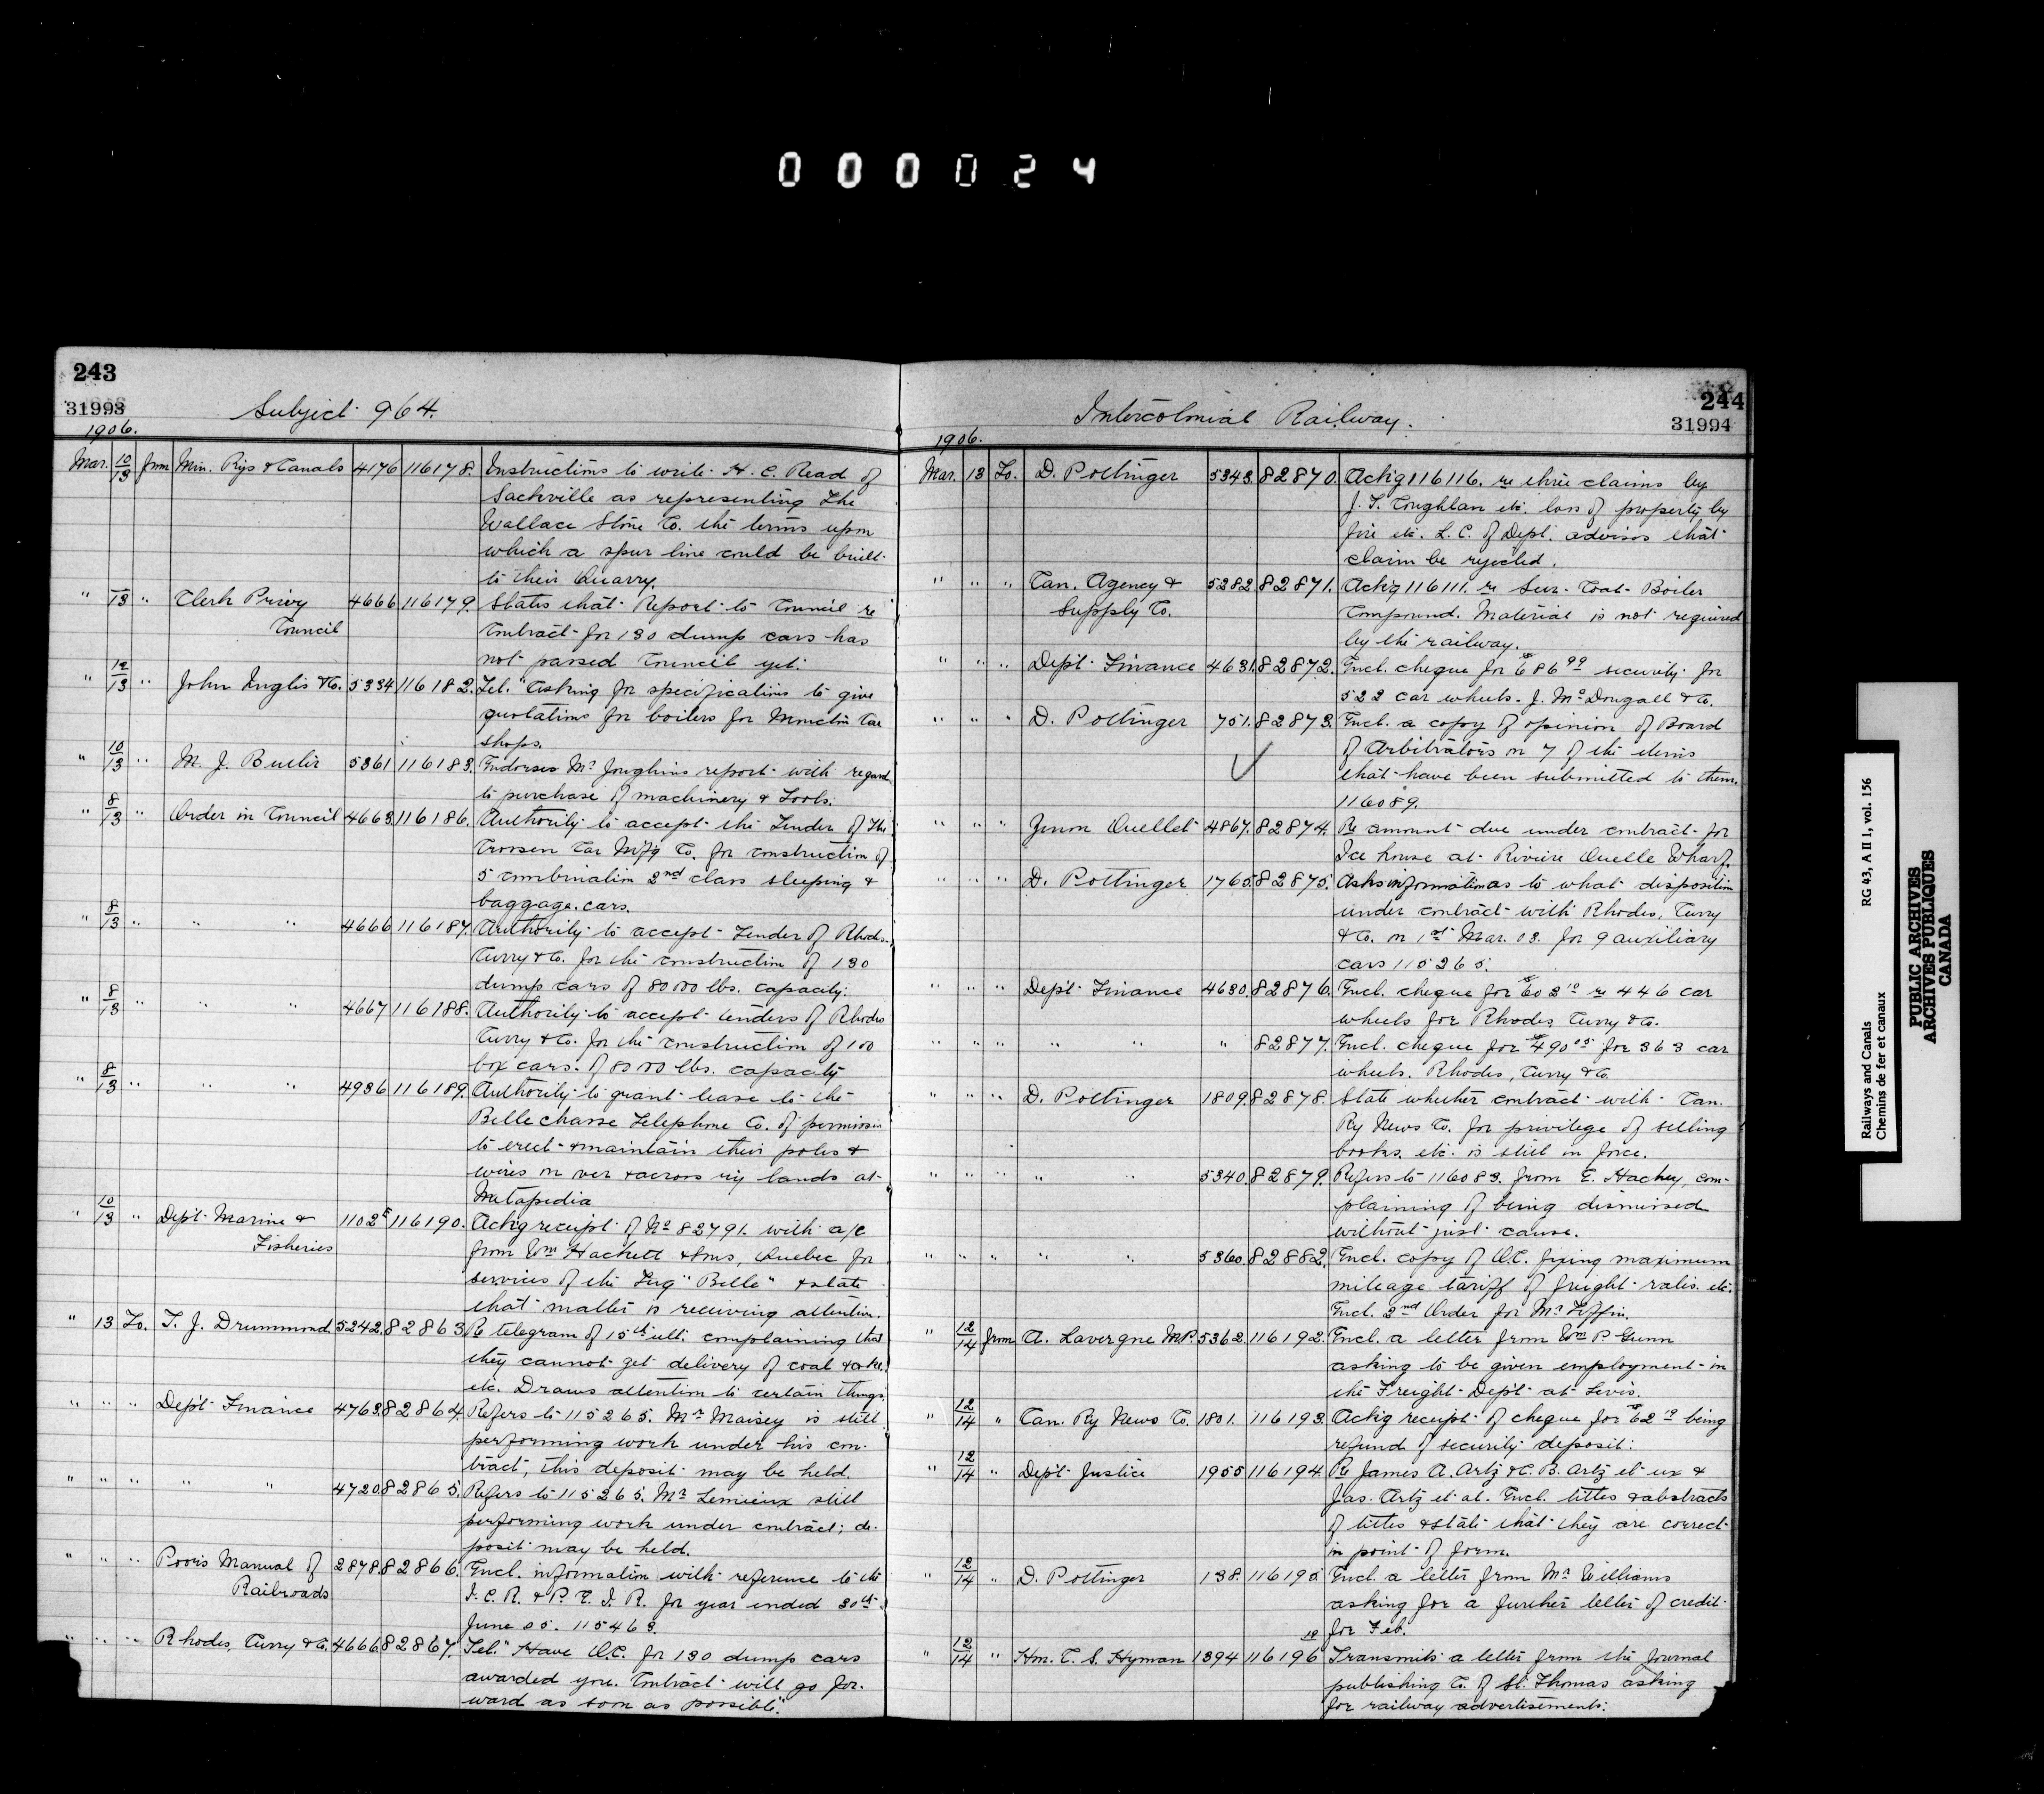 000024
243
31993
Subject 964.
1906.
Mar. 10/13 from Min. Rys & Canals 4176 116178. Instructions to write H. C. Read of
Sackville as representing the
Wallace Stone Co. the terms upon
which a spur line could be built
to their Quarry.
" /13 " Clerk Privy 4666 116179. States that Report to Council re
Council contract for 130 dump cars has
not passed Council yet.
" 12/13 " John Inglis & Co. 5334 116182. Tel. "Asking for specifications to give
quotations for boilers for Moncton Car
shops.
" 10/13 " M. J. Butler 5361 116183. Endorses Mr Joughins report with regard
to purchase of machinery & Tools.
" 8/13 " Order in Council 4663. 116186. Authority to accept the Tender of The
Crossen Car Mfg Co. for construction of
5 combination 2nd class sleeping &
baggage cars.
" 8/13 " " " 4666 116187. Authority to accept Tender of Rhodes
Curry & Co. for the construction of 130
dump cars of 80000 lbs. capacity.
" 8/13 " " " 4667 116188. Authority to accept tenders of Rhodes
Curry & Co. for the construction of 100
box cars of 80000 lbs. capacity
" 8/13 " " " 4936 116189. Authority to grant lease to the
Bellechasse Telephone Co. of permission
to erect & maintain their poles &
wires on over & across ry lands at
Matapedia
" 10/13 " Dept. Marine & 1102 116190. Ackg receipt of No 82791. with a/c
Fisheries from Wm Hackett & Sons, Quebec for
services of the Tug "Belle" & state
that matter is receiving attention.
" 13 To. T. J. Drummond 5242. 82863 Re telegram of 15th ulti. complaining that
they cannot get delivery of coal & coke.
etc. Draws attention to certain things.
" " " Dept. Finance 4763. 82864. Refers to 115265. Mr Maisey is still
performing work under his con-
tract, this deposit may be held.
" " " " " 4720. 82865. Refers to 115265. Mr Lemieux still
performing work under contract; de-
posit may be held.
" " " Poor's Manual of 2878. 82866. Encl. information with reference to the
Railroads I. C. R. & P. E. I. R. for year ended 30th
June 05. 115463.
" " " Rhodes, Curry & Co. 4666. 82867. Tel. "Have O.C. for 130 dump cars
awarded you. Contract will go for-
ward as soon as possible."
244
31994
Intercolonial Railway.
1906.
Mar. 13 To. D. Pottinger 5343. 82870. Ackg 116116. re three claims by
J. T. Coughlan etc. loss of property by
fire etc. L. C. of Dept. advises that
claim be rejected.
" " " Can. Agency & 5282. 82871. Ackg 116111. re Sur-Coat Boiler
Supply Co. Compound. Material is not required
by the railway.
" " " Dept. Finance 4631. 82872. Encl. cheque for $686 99 security for
522 car wheels. J. McDougall & Co.
" " " D. Pottinger 751. 82873. Encl. a copy of opinion of Board
of Arbitrators on 7 of the items
that have been submitted to them.
116089.
" " " Zenon Ouellet 4867. 82874. Re amount due under contract for
Ice house at Riviere Ouelle Wharf.
" " " D. Pottinger 1765. 82875. Asks information as to what disposition
under contract with Rhodes, Curry
& Co. on 1st Mar. 03. for 9 auxiliary
cars 115265.
" " " Dept. Finance 4630. 82876. Encl. cheque for $603 10 re 446 car
wheels for Rhodes, Curry & Co.
" " " " " " 82877. Encl. cheque for $490 05 for 363 car
wheels. Rhodes, Curry & Co.
" " " D. Pottinger 1809. 82878. State whether contract with Can.
Ry News Co. for privilege of selling
books, etc. is still in force.
" " " " " 5340. 82879. Refers to 116083. from E. Hachey, com-
plaining of being dismissed
without just cause.
" " " " " 5360. 82882. Encl. copy of O.C. fixing maximum
mileage tariff of freight rates. etc.
Encl. 2nd Order for Mr Tiffin.
" 12/14 from A. Lavergne M.P. 5362. 116192. Encl. a letter from Wm P. Gunn
asking to be given employment in
the Freight Dept. at Levis.
" 12/14 " Can. Ry News Co. 1801. 116193. Ackg receipt of cheque for $62 10 being
refund of security deposit.
" 12/14 " Dept. Justice 1955 116194. Re James A. Artz & C. B. Artz et ux &
Jas. Artz et al. Encl. titles & abstracts
of titles & state that they are correct
in point of form.
" 12/14 " D. Pottinger 138. 116195 Encl. a letter from Mr Williams
asking for a further letter of credit
for Feb.
" 12/14 " Hon. C. S. Hyman 1394 116196 Transmits a letter from the Journal
publishing Co. of St. Thomas asking
for railway advertisements.
Railways and Canals RG 43, A II 1, vol. 156
Chemins de fer et canaux
PUBLIC ARCHIVES
ARCHIVES PUBLIQUES
CANADA